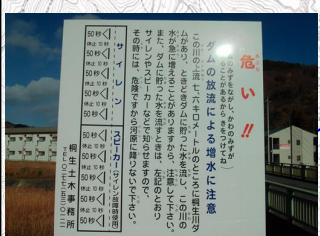 危い!!
みずをながし、かわのみずが
ことがあるからきをつけてね
ダムの放流による増水に注意
この川の上流一六キロメートルのところに桐生川ダ
ムがあり、ときどきダムに貯った水を流し、この川の
水が急に増えることがありますから、注意して下さい。
また、ダムに貯った水を流すときは、左記のとおり
サイレンやスピーカーなどで知らせますので、
その時には、危険ですから河原に降りないで下さい。
サイレン
50秒
休止10秒
50秒
休止10秒
50秒
休止10秒
50秒
休止10秒
50秒
スピーカー(サイレン故障時使用)
50秒
休止10秒
50秒
休止10秒
50秒
休止10秒
50秒
休止10秒
50秒
桐生土木事務所